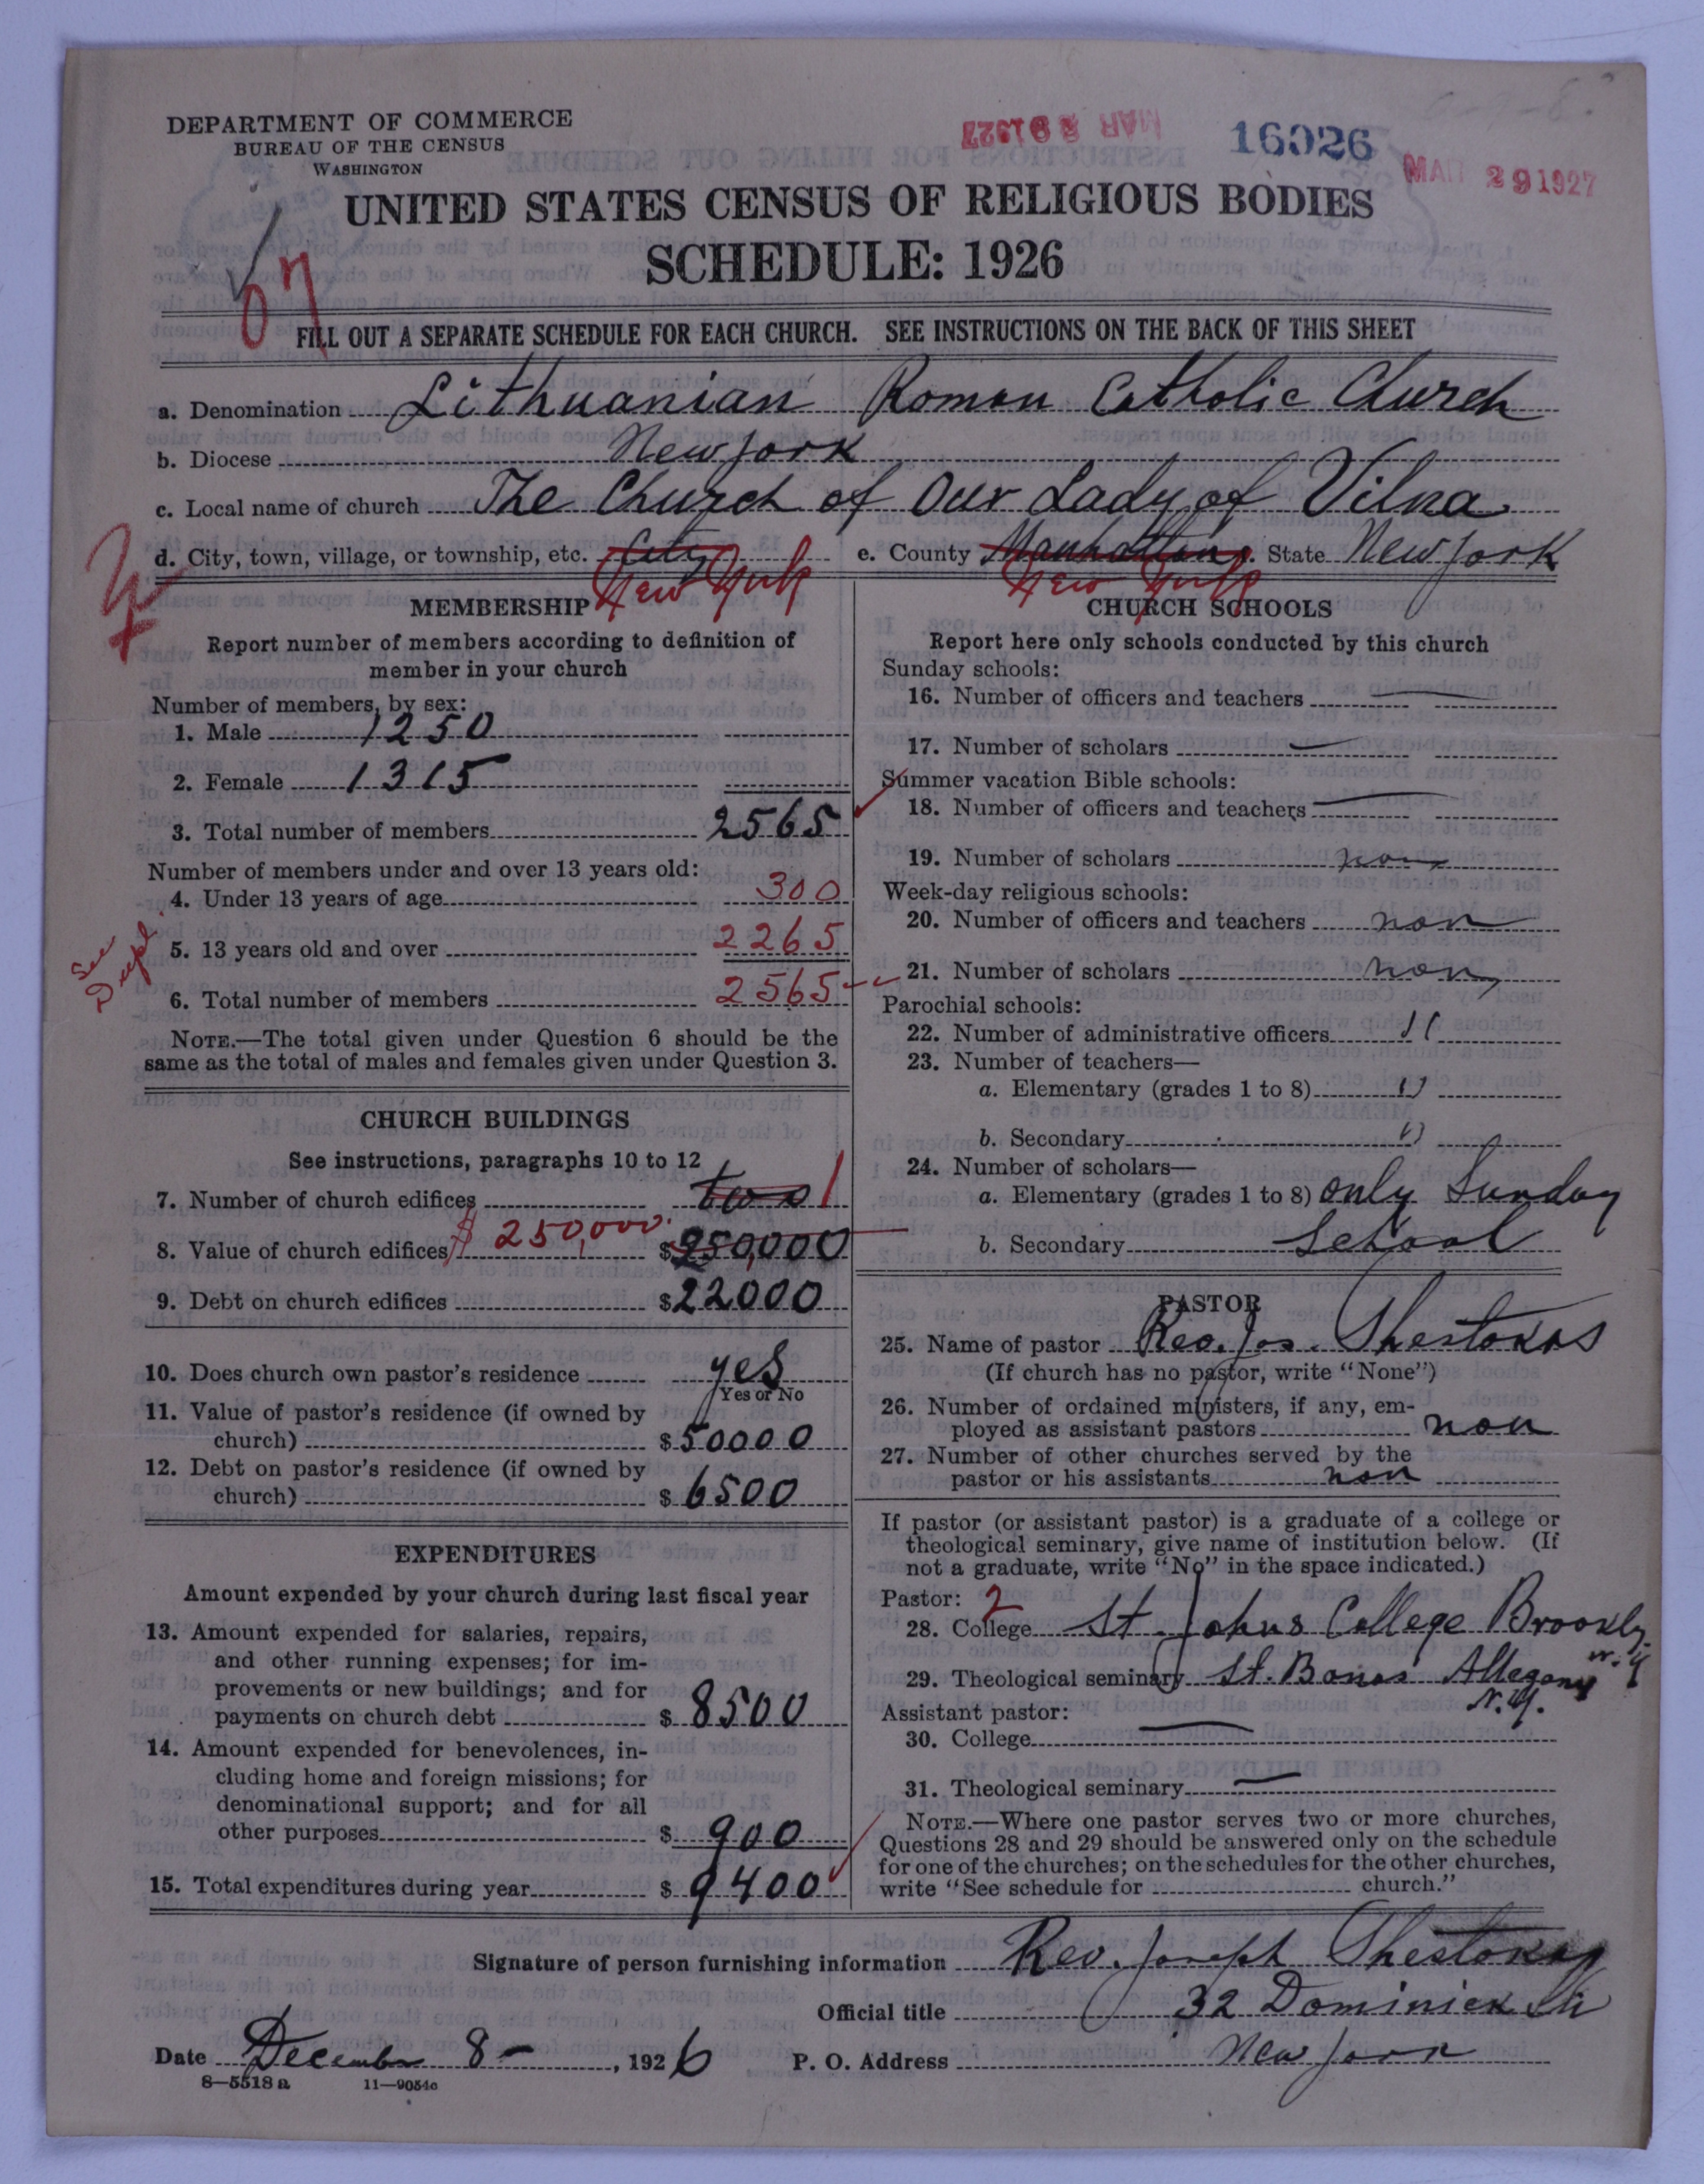 DEPARTMENT OF COMMERCE
BUREAU OF THE CENSUS
WASHINGTON
MAR 28 1927
16026
MAR 29 1927
UNITED STATES CENSUS OF RELIGIOUS BODIES
SCHEDULE: 1926
07
FILL OUT A SEPARATE SCHEDULE FOR EACH CHURCH. SEE INSTRUCTIONS ON THE BACK OF THIS SHEET
a. Denomination Lithuanian Roman Catholic Church
b. Diocese New York
c. Local name of church The Church of Our Lady of Vilna
d. City, town, village, or township, etc. City New York e. County Manhattan New York State New York
MEMBERSHIP
Report number of members according to definition of
member in your church
Number of members, by sex:
1. Male 1250
2. Female 1315
3. Total number of members 2565
Number of members under and over 13 years old:
4. Under 13 years of age 300
5. 13 years old and over 2265
See
6. Total number of members 2565
NOTE.—The total given under Question 6 should be the
same as the total of males and females given under Question 3.
CHURCH BUILDINGS
See instructions, paragraphs 10 to 12
7. Number of church edifices two 1
8. Value of church edifices $250,000. $250,000
9. Debt on church edifices $22000
10. Does church own pastor's residence yes
Yes or No
11. Value of pastor's residence (if owned by
church) $50000
12. Debt on pastor's residence (if owned by
church) $6500
EXPENDITURES
Amount expended by your church during last fiscal year
13. Amount expended for salaries, repairs,
and other running expenses; for im-
provements or new buildings; and for
payments on church debt $8500
14. Amount expended for benevolences, in-
cluding home and foreign missions; for
denominational support; and for all
other purposes $900
15. Total expenditures during year $9400
CHURCH SCHOOLS
Report here only schools conducted by this church
Sunday schools:
16. Number of officers and teachers —
17. Number of scholars —
Summer vacation Bible schools:
18. Number of officers and teachers —
19. Number of scholars non
Week-day religious schools:
20. Number of officers and teachers non
21. Number of scholars non
Parochial schools:
22. Number of administrative officers 11
23. Number of teachers—
a. Elementary (grades 1 to 8) 11
b. Secondary 11
24. Number of scholars—
a. Elementary (grades 1 to 8) only Sunday
b. Secondary School
PASTOR
25. Name of pastor Rev. Jos. Shestokas
(If church has no pastor, write "None")
26. Number of ordained ministers, if any, em-
ployed as assistant pastors non
27. Number of other churches served by the
pastor or his assistants non
If pastor (or assistant pastor) is a graduate of a college or
theological seminary, give name of institution below. (If
not a graduate, write "No" in the space indicated.)
Pastor: 2
28. College St. Johns College Brookly
N.Y
29. Theological seminary St. Bonas Allegany
N.Y.
Assistant pastor:
30. College —
31. Theological seminary —
NOTE.—Where one pastor serves two or more churches,
Questions 28 and 29 should be answered only on the schedule
for one of the churches; on the schedules for the other churches,
write "See schedule for church."
Signature of person furnishing information Rev. Joseph Shestokas
Official title 32 Dominick Str
Date December 8 -, 1926 P. O. Address New York
8—5518 a 11—9054c